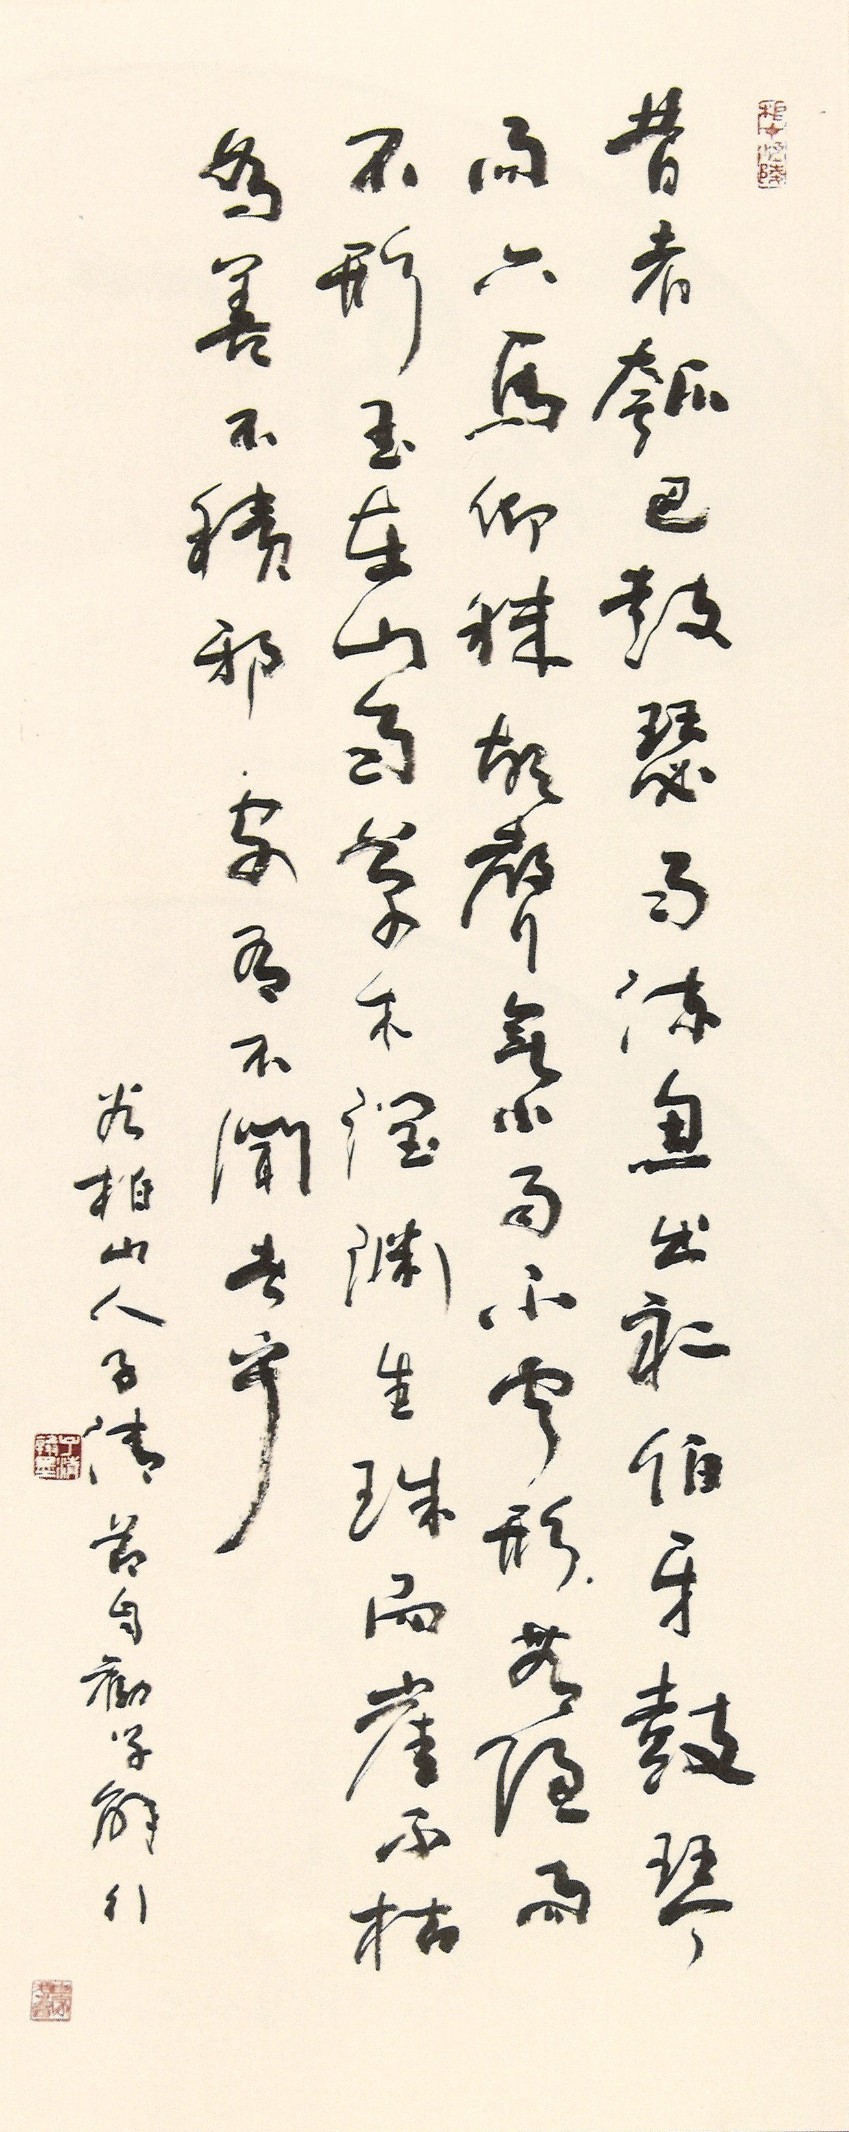 昔者瓠巴鼓瑟而流魚出聽伯牙鼓琴
而六馬仰秣故聲無小而不聞形無隱而
不形玉在山而草木潤淵生珠而崖不枯
為善不積邪安有不聞者乎
柏山人子清節自勸学解
子清翰墨